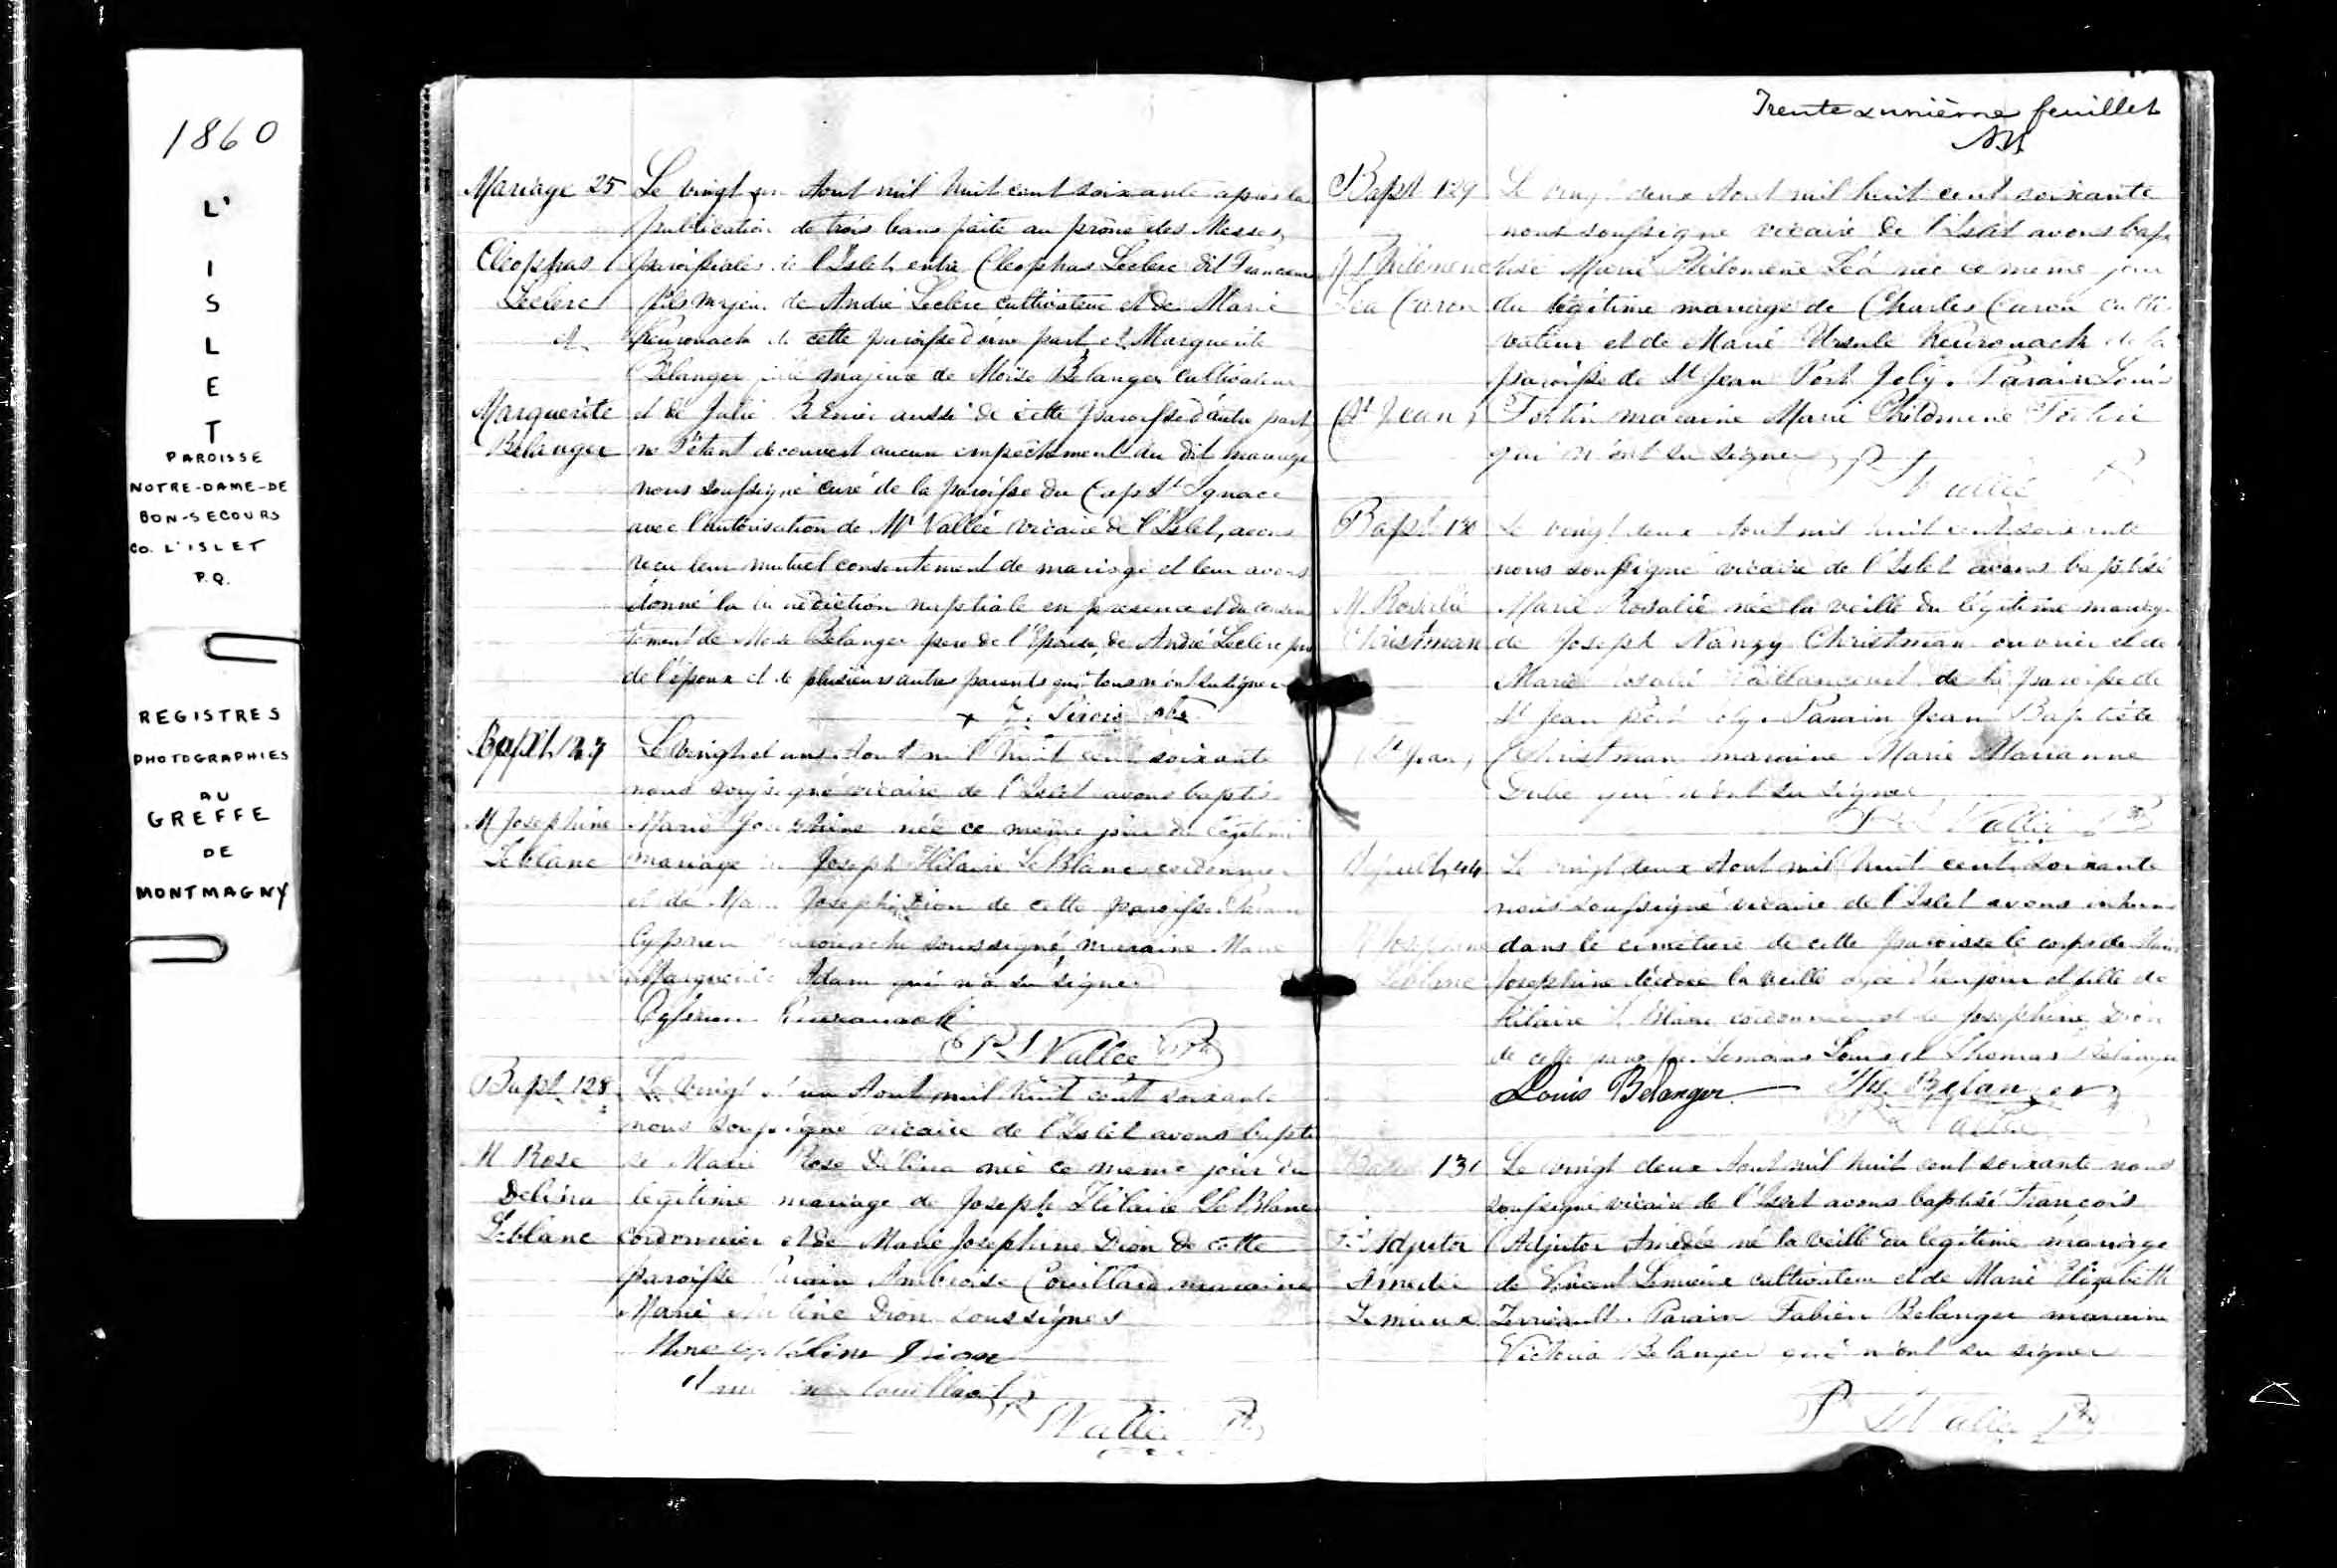 1860
L'
I
S
L
E
T
PAROISSE
NOTRE-DAME-DE
BON-SECOURS
CO. L'ISLET
P.Q.
REGISTRES
PHOTOGRAPHIES
AU
GREFFE
DE
MONTMAGNY
Mariage 25
Cleophas
Leclerc
et
Marguerite
Belanger
Le vingt un Aout mil huit cent soixante après la
publication de trois bans faite au prône des Messes
paroissiales de l'Islet entre Cleophas Leclerc dit Francoeur
fils majeur de André Leclerc cultivateur et de Marie
Keurouack de cette paroisse d'une part, et Marguerite
Bélanger fille majeure de Moïse Belanger cultivateur
et de Julie Bernier aussi de cette paroisse d'autre part
ne s'étant decouvert aucun empêchement au dit mariage
nous soussigné curé de la paroisse du Cap St Ignace
avec l'autorisation de Mr Vallée vicaire de l'Islet, avons
reçu leur mutuel consentement de mariage et leur avons
donné la bénédiction nuptiale en presence et du consen
tement de Moise Belanger pere de l'Epouse, de André Leclerc pere
de l'époux et de plusieurs autres parents qui tous n'ont su signer
+ Z. Sirois Ptre
Bapt 127
M Josephine
Leblanc
Le vingt et un Aout mil huit cent soixante
nous soussigné vicaire de l'Islet avons baptisé
Marie Josephine née ce même jour du légitime
mariage de Joseph Hilaire LeBlanc cordonnier
et de Marie Josephine Dion de cette paroisse Parain
Cyprien Keurouack soussigné, maraine Marie
Marguerite Adam qui n'a su signer
Cyprien Keurouack
P S Vallée Ptr
Bapt 128
M Rose
Delina
Leblanc
Le vingt et un Aout mil huit cent soixante
nous soussigné vicaire de l'Islet avons bapti
sé Marie Rose Délina née ce meme jour du
legitime mariage de Joseph Hilaire LeBlanc
cordonnier et de Marie Josephine Dion de cette
paroisse Parain Ambroise Couillard maraine
Marie Dion soussignés
Dion
Couillard
Vallée Ptr
Trente unième feuillet
Bapt 129
M Philomene
Léa Caron
(St Jean)
Le vingt deux Aout mil huit cent soixante
nous soussigné vicaire de l'Islet avons bap
tisé Marie Philomene Léa née ce meme jour
du légitime mariage de Charles Caron culti
vateur et de Marie Ursule Keurouack de la
paroisse de St Jean Port Joly. Parain Louis
Fortin maraine Marie Philomene Fortin
qui n'ont su signer P S Vallée
Bapt 130
M. Rosalie
Christman
(St Jean)
Le vingt deux Aout mil huit cent soixante
nous soussigné vicaire de l'Islet avons baptisé
Marie Rosalie née la veille du légitime mariage
de Joseph Nanzy Christman ouvrier et de
Marie Rosalie Vaillancourt de la paroisse de
St Jean Port Joly. Parain Jean Baptiste
Christman maraine Marie Marianne
Dube qui n'ont su signer
P S Vallée Ptr
Sepult, 44
M Josephine
Leblanc
Le vingt deux Aout mil huit cent soixante
nous soussigné vicaire de l'Islet avons inhumé
dans le cimetière de cette paroisse le corps de Marie
Josephine décédée la veille agée d'un jour et fille de
Hilaire LeBlanc cordonnier et de Josephine Dion
de cette paroisse. Temoins Louis et Thomas Belanger
Louis Belanger Ths. Belanger
P S Vallée
Bapt 131
Fs Adjutor
Amedée
Lemieux
Le vingt deux Aout mil huit cent soixante nous
soussigné vicaire de l'Islet avons baptisé François
Adjutor Amédée né la veille du légitime mariage
de Vincent Lemieux cultivateur et de Marie Elizabeth
Terriault. Parain Fabien Belanger maraine
Victoria Belanger qui n'ont su signer
P S Vallée Ptr